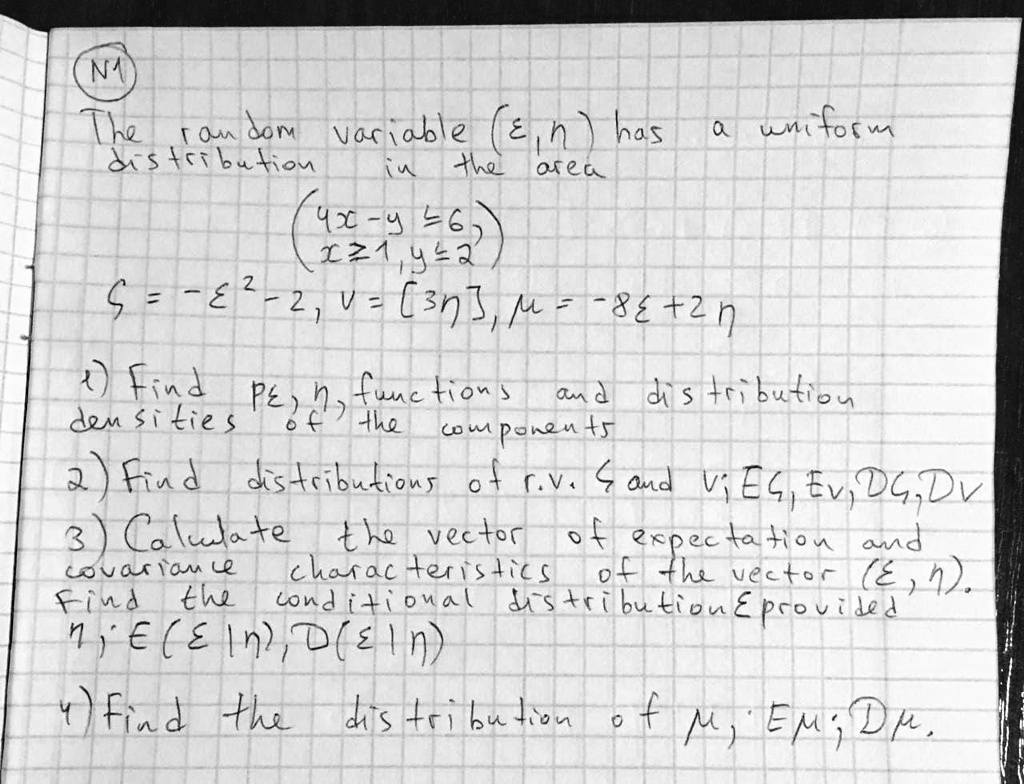 N1
The random variable (ε, η) has a uniform
distribution in the area
(4x - y ≤ 6,
x ≥ 1, y ≤ 2)
ς = -ε² - 2, ν = [3η], μ = -8ε + 2η
1) Find pε, η, functions and distribution
densities of the components
2) Find distributions of r.v. ς and ν; Eς, Eν, Dς, Dν
3) Calculate the vector of expectation and
covariance characteristics of the vector (ε, η).
Find the conditional distribution ε provided
η; E(ε|η), D(ε|η)
4) Find the distribution of μ; Eμ; Dμ.